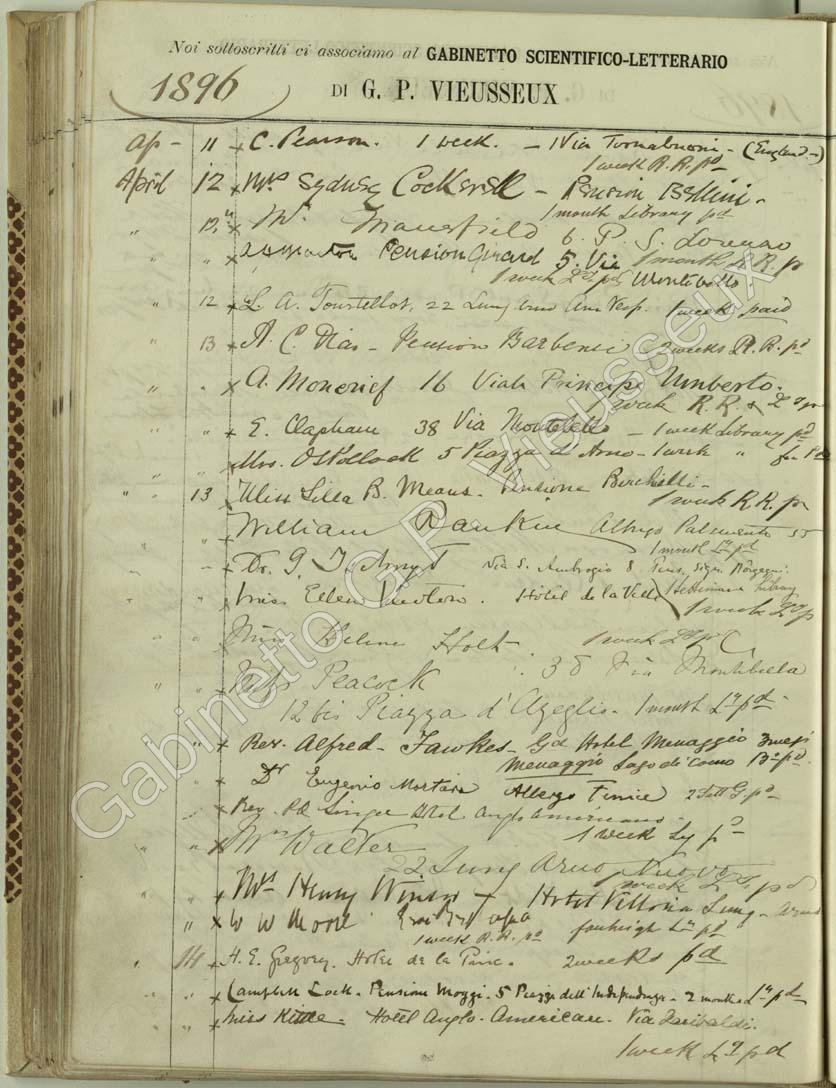 Noi sottoscritti ci associamo al GABINETTO SCIENTIFICO-LETTERARIO
1896 DI G. P. VIEUSSEUX
ap - 11 C. Pearson. 1 week. - 1 Via Tornabuoni - (England -)
1 week R.R. pd
April 12 Mrs Sydney Cockerell - Pension Bellini -
1 month Library pd
" 12 " Mr. Mansfield 6. P. S. Lorenzo
" " Pension Girard 5. Via 1 month R.R. p
1 week Montebello
" 12 L. A. Tourtellot, 22 Lung Arno Am. Vesp. 1 week paid
" 13 A. C. Dias - Pension Barbensi 2 weeks R.R. pd
" " A. Moncrief 16 Viale Principe Umberto.
1 week R.R. &
" " E. Clapham 38 Via Montebello - 1 week Library pd
" Mrs. Pollock 5 Piazza d'Arno - 1 week "
" " 13 Miss Lilla B. Means - Pensione Birchielli -
1 week R.R. p
" William Rankin Albergo Palmento 55
1 month Ly pd
Dr. G. J. Via S. Ambrogio 8
Miss Ellen Hotel de la Ville 1 Settimana Library
1 week
" " Miss Helene Holt 1 week
38 Via Montebello
" " Miss Peacock
12 bis Piazza d'Azeglio - 1 month Ly pd -
" " Rev. Alfred - Fawkes - Gd Hotel Menaggio 3 mesi
Menaggio Lago di Como
" " Dr Eugenio Mortara Albergo Fenice 2 Sett G. pd
Rev. Singer Hotel Anglo Americano -
1 week Ly pd
" " Mrs Walter
22 Lung Arno Nuovo
1 week pd
" " Mrs Henry Winsor Hotel Vittoria Lung - Arno
" W W Moore
1 week R.R. pd Ly pd
" 14 H. E. Gregory. Hotel de la Paix. 2 weeks pd
" Campbell Lock - Pensione Moggi - 5 Piazza dell'Independenza - 2 months Ly pd
" " Miss Kittle - Hotel Anglo-American - Via Garibaldi.
1 week Ly pd
Gabinetto G.P. Vieusseux